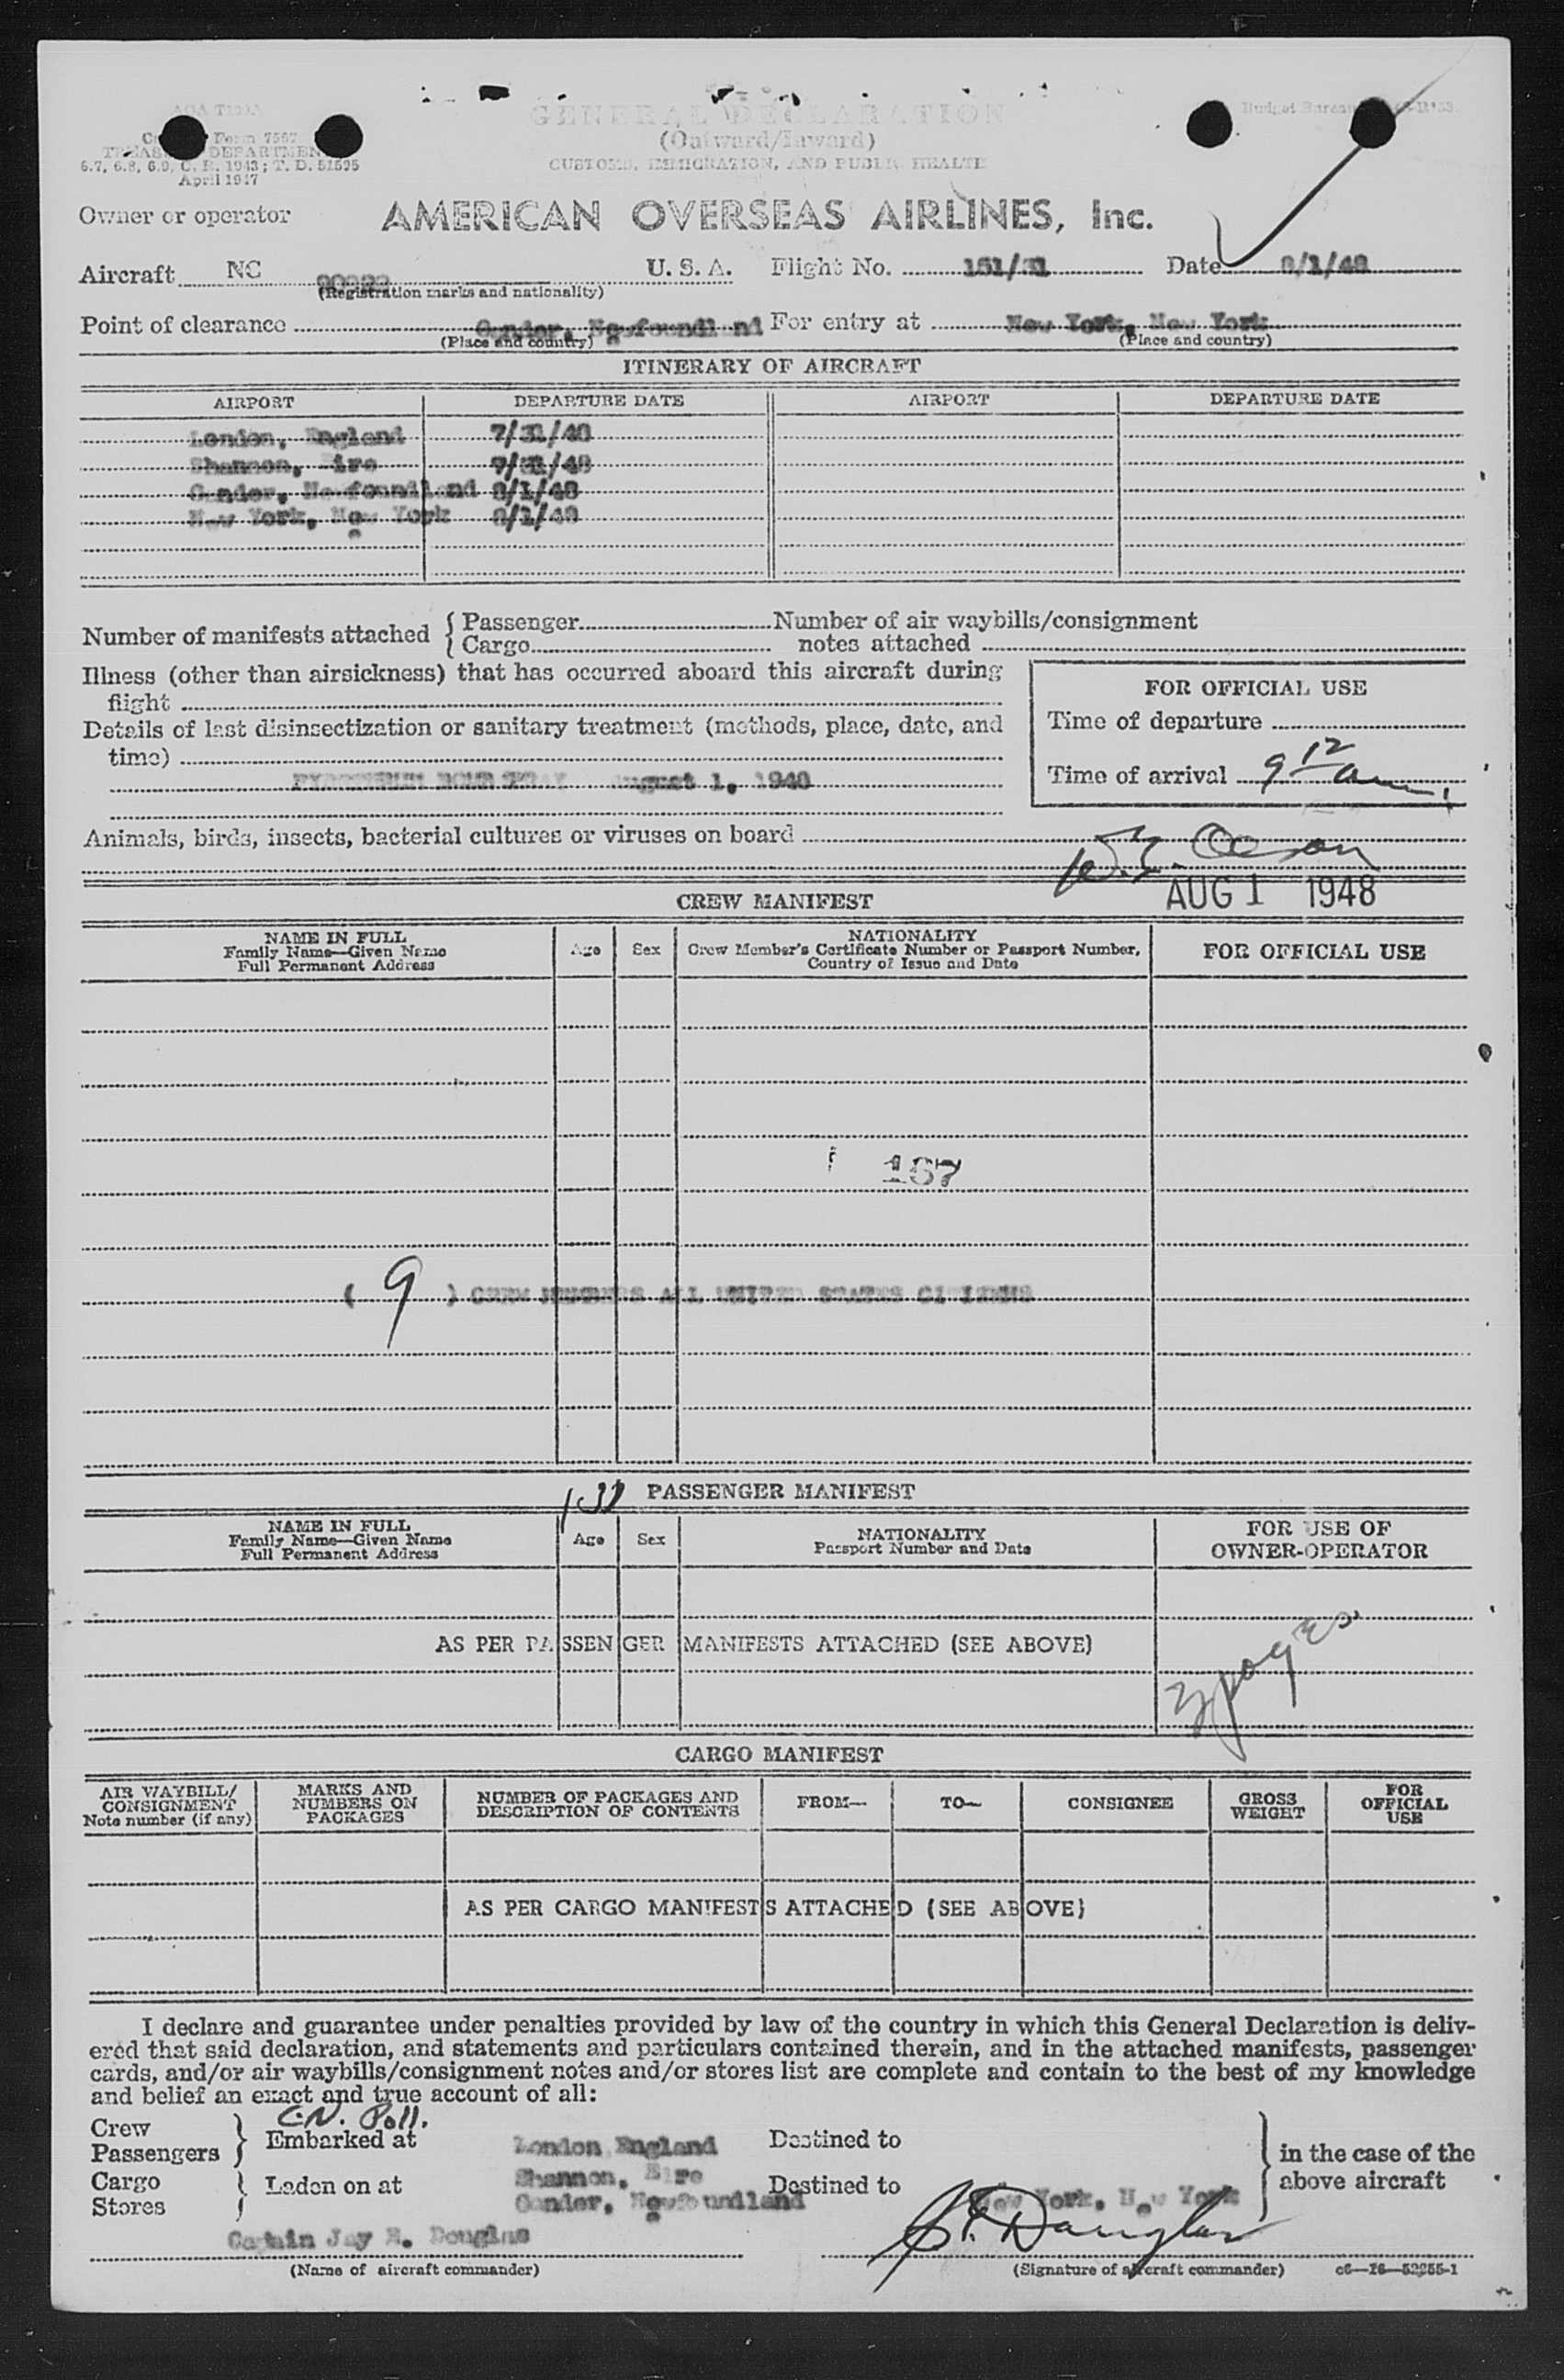 GENERAL DECLARATION
(Outward/Inward)
CUSTOMS, IMMIGRATION, AND PUBLIC HEALTH
Form 7507
TREASURY DEPARTMENT
6.7, 6.8, 6.9, C. R. 1943; T. D. 51595
April 1947
Budget Bureau
Owner or operator AMERICAN OVERSEAS AIRLINES, Inc.
Aircraft NC U. S. A. Flight No. 151/31 Date 8/1/48
(Registration marks and nationality)
Point of clearance Gander, Newfoundland For entry at New York, New York
(Place and country) (Place and country)
ITINERARY OF AIRCRAFT
AIRPORT DEPARTURE DATE AIRPORT DEPARTURE DATE
London, England 7/31/48
Shannon, Eire 7/31/48
Gander, Newfoundland 8/1/48
New York, New York 8/1/48
Number of manifests attached { Passenger Number of air waybills/consignment
{ Cargo notes attached
Illness (other than airsickness) that has occurred aboard this aircraft during
flight
FOR OFFICIAL USE
Details of last disinsectization or sanitary treatment (methods, place, date, and
time)
Time of departure
Time of arrival 9 12 am
August 1, 1948
Animals, birds, insects, bacterial cultures or viruses on board
AUG 1 1948
CREW MANIFEST
NAME IN FULL
Family Name—Given Name
Full Permanent Address
Age Sex
NATIONALITY
Crew Member's Certificate Number or Passport Number,
Country of Issue and Date
FOR OFFICIAL USE
167
( 9 ) CREW MEMBERS ALL UNITED STATES CITIZENS
PASSENGER MANIFEST
NAME IN FULL
Family Name—Given Name
Full Permanent Address
Age Sex
NATIONALITY
Passport Number and Date
FOR USE OF
OWNER-OPERATOR
AS PER PASSENGER MANIFESTS ATTACHED (SEE ABOVE)
3 pages
CARGO MANIFEST
AIR WAYBILL/
CONSIGNMENT
Note number (if any)
MARKS AND
NUMBERS ON
PACKAGES
NUMBER OF PACKAGES AND
DESCRIPTION OF CONTENTS
FROM— TO— CONSIGNEE
GROSS
WEIGHT
FOR
OFFICIAL
USE
AS PER CARGO MANIFESTS ATTACHED (SEE ABOVE)
I declare and guarantee under penalties provided by law of the country in which this General Declaration is deliv-
ered that said declaration, and statements and particulars contained therein, and in the attached manifests, passenger
cards, and/or air waybills/consignment notes and/or stores list are complete and contain to the best of my knowledge
and belief an exact and true account of all:
C.N. Poll.
Crew
Passengers } Embarked at London England Destined to
Cargo
Stores } Laden on at Shannon, Eire Destined to
Gander, Newfoundland New York, New York
in the case of the
above aircraft
Captain Jay E. Douglas
(Name of aircraft commander) (Signature of aircraft commander) c6—16—52255-1